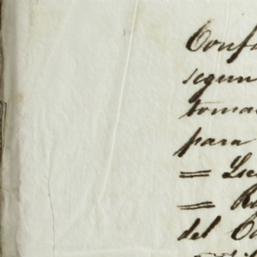 Confo
segun
toma
para
= Lic
= R
del C